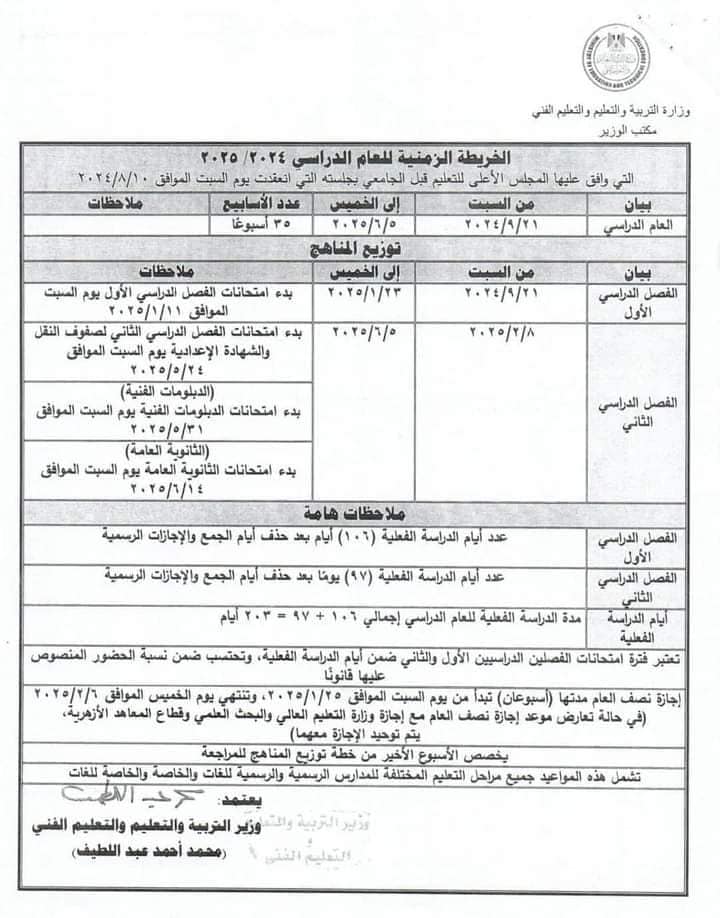 وزارة التربية والتعليم والتعليم الفني
مكتب الوزير
الخريطة الزمنية للعام الدراسي ٢٠٢٤/ ٢٠٢٥
التي وافق عليها المجلس الأعلى للتعليم قبل الجامعي بجلسته التي انعقدت يوم السبت الموافق ٢٠٢٤/٨/١٠
بيان من السبت إلى الخميس عدد الأسابيع ملاحظات
العام الدراسي ٢٠٢٤/٩/٢١ ٢٠٢٥/٦/٥ ٣٥ أسبوعًا
توزيع المناهج
بيان من السبت إلى الخميس ملاحظات
الفصل الدراسي الأول ٢٠٢٤/٩/٢١ ٢٠٢٥/١/٢٣ بدء امتحانات الفصل الدراسي الأول يوم السبت
الموافق ٢٠٢٥/١/١١
الفصل الدراسي الثاني ٢٠٢٥/٢/٨ ٢٠٢٥/٦/٥ بدء امتحانات الفصل الدراسي الثاني لصفوف النقل
والشهادة الإعدادية يوم السبت الموافق
٢٠٢٥/٥/٢٤
(الدبلومات الفنية)
بدء امتحانات الدبلومات الفنية يوم السبت الموافق
٢٠٢٥/٥/٣١
(الثانوية العامة)
بدء امتحانات الثانوية العامة يوم السبت الموافق
٢٠٢٥/٦/١٤
ملاحظات هامة
الفصل الدراسي الأول عدد أيام الدراسة الفعلية (١٠٦) أيام بعد حذف أيام الجمع والإجازات الرسمية
الفصل الدراسي الثاني عدد أيام الدراسة الفعلية (٩٧) يومًا بعد حذف أيام الجمع والإجازات الرسمية
أيام الدراسة الفعلية مدة الدراسة الفعلية للعام الدراسي إجمالي ١٠٦ + ٩٧ = ٢٠٣ أيام
تعتبر فترة امتحانات الفصلين الدراسيين الأول والثاني ضمن أيام الدراسة الفعلية، وتحتسب ضمن نسبة الحضور المنصوص
عليها قانونًا
إجازة نصف العام مدتها (أسبوعان) تبدأ من يوم السبت الموافق ٢٠٢٥/١/٢٥، وتنتهي يوم الخميس الموافق ٢٠٢٥/٢/٦
(في حالة تعارض موعد إجازة نصف العام مع إجازة وزارة التعليم العالي والبحث العلمي وقطاع المعاهد الأزهرية،
يتم توحيد الإجازة معهما)
يخصص الأسبوع الأخير من خطة توزيع المناهج للمراجعة
تشمل هذه المواعيد جميع مراحل التعليم المختلفة للمدارس الرسمية والرسمية للغات والخاصة والخاصة للغات
يعتمد:
وزير التربية والتعليم والتعليم الفني
(محمد أحمد عبد اللطيف)
وزير التربية والتعليم
و
التعليم الفني